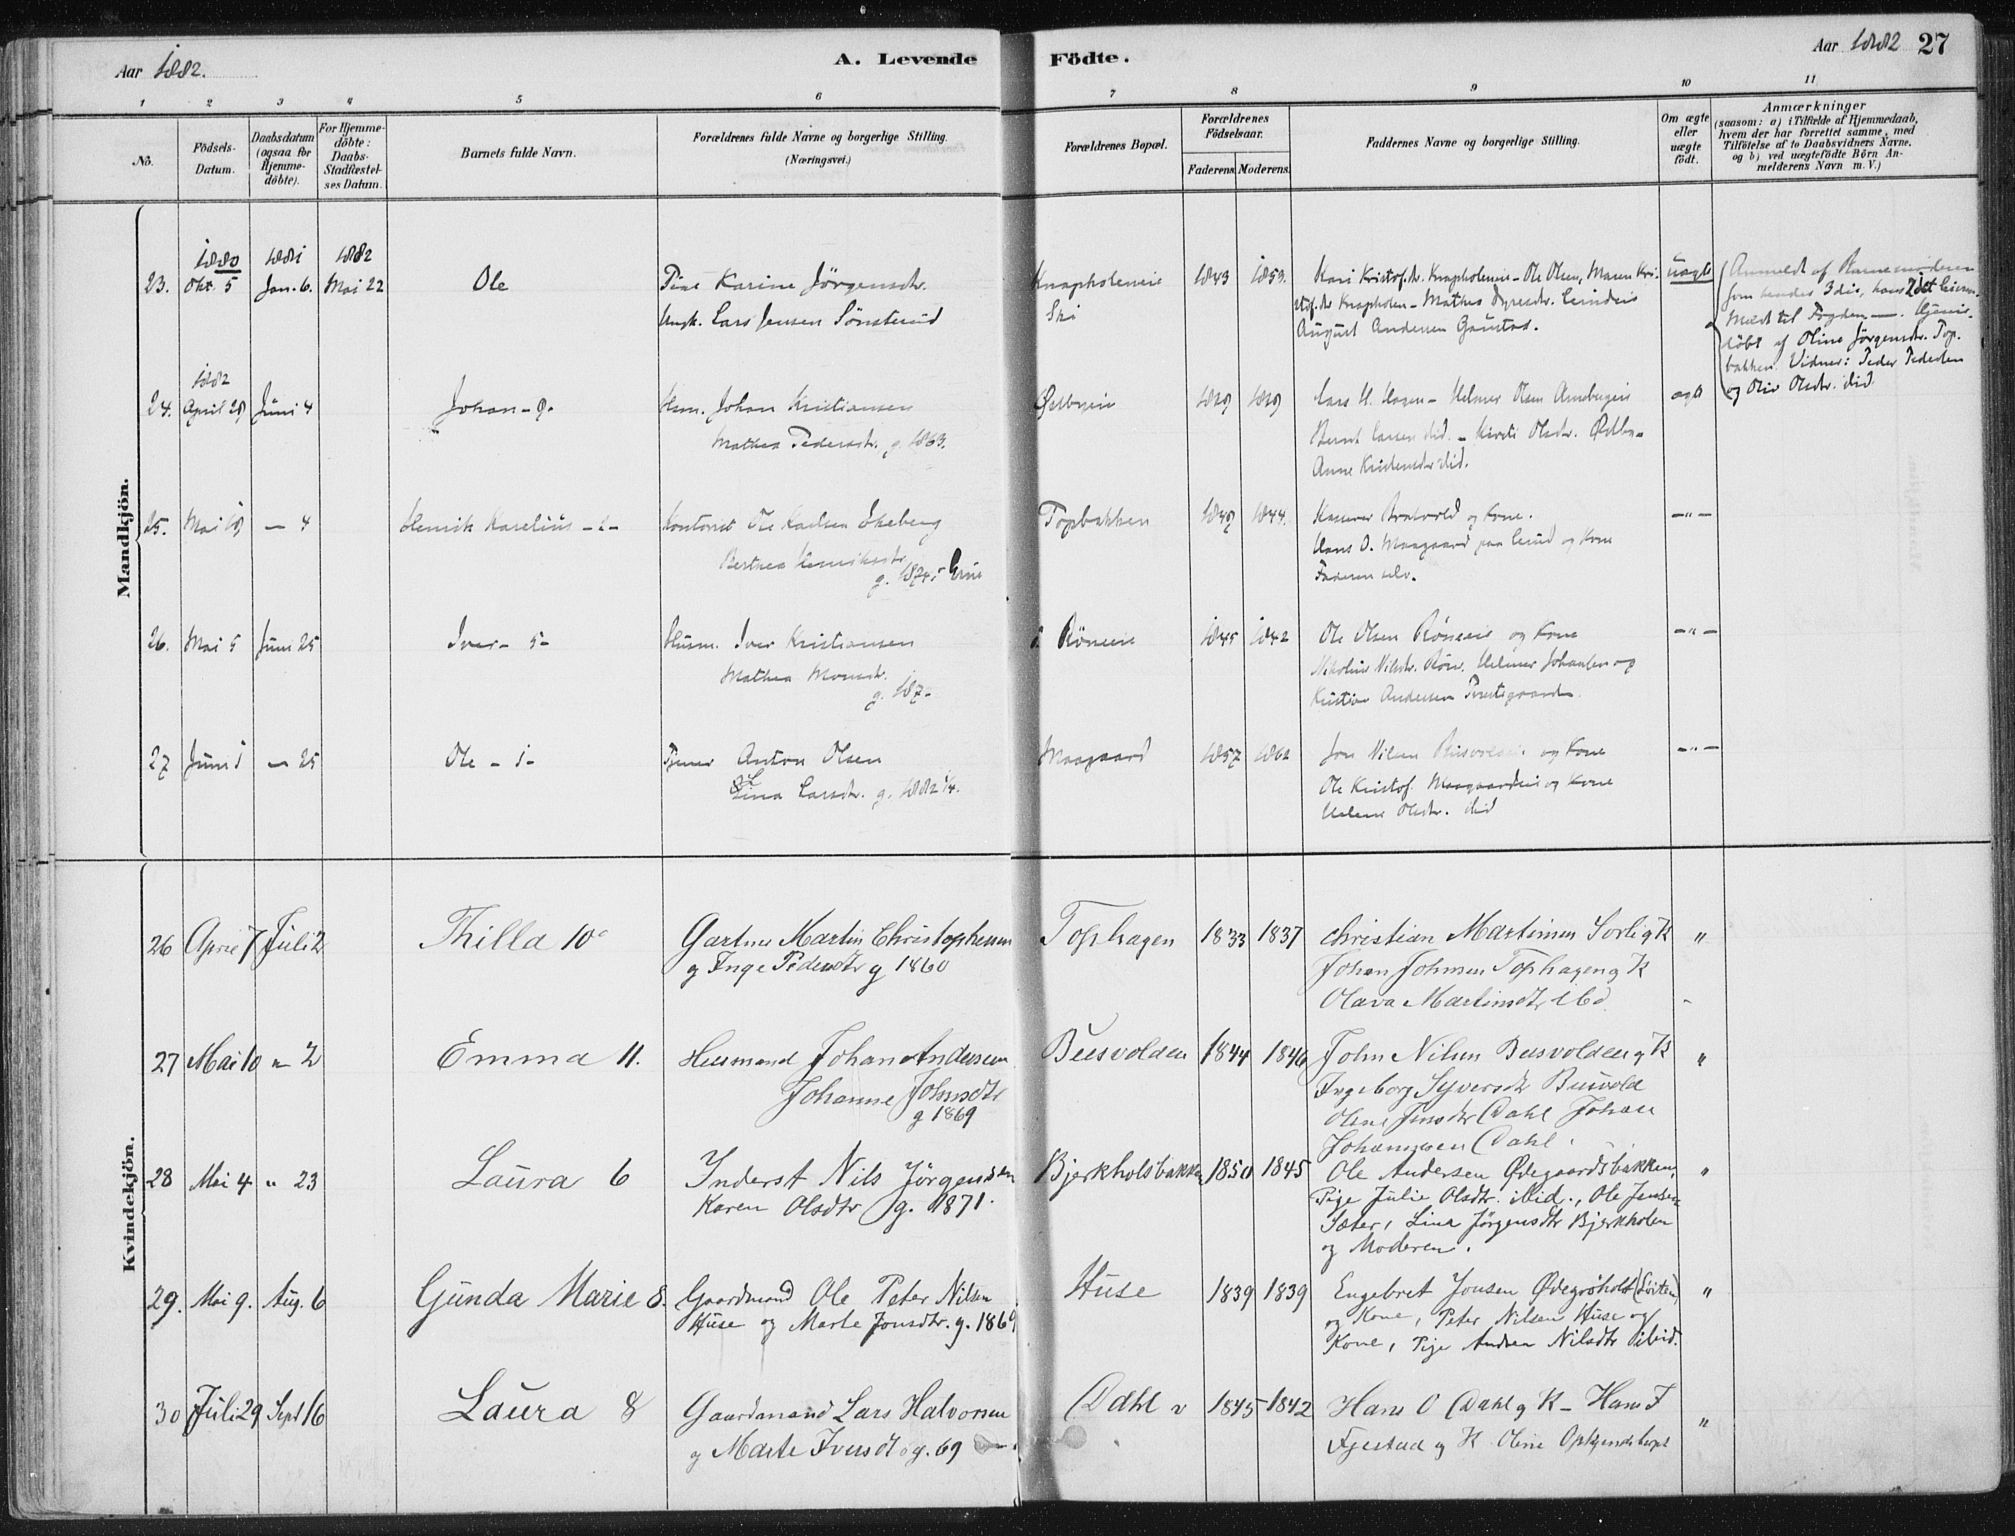 Aar 1882.
A. Levende Födte.
Aar 1882 27
1 2 3 4 5 6 7 8 9 10 11
No.
Födsels-
Datum.
Daabsdatum
(ogsaa for
Hjemme-
döbte).
For Hjemme-
döbte:
Daabs-
Stadfæstel-
ses Datum.
Barnets fulde Navn.
Forældrenes fulde Navne og borgerlige Stilling.
(Næringsvei.)
Forældrenes Bopæl.
Forældrenes
Födselsaar.
Faderens Moderens
Faddernes Navne og borgerlige Stilling.
Om ægte
eller
uægte
födt.
Anmærkninger
(saasom: a) i Tilfælde af Hjemmedaab,
hvem der har forrettet samme, med
Tilföielse af to Daabsvidners Navne.
og b) ved uægtefödte Börn An-
melderens Navn m. V.)
Mandkjön.
1880 1881 1882
23. Okt. 5 Jan. 6. Mai 22 Ole
Pige Karine Jörgensdr.
Ungk. Lars Jensen Sönsterud
Knapholeneie
Ski
1843 1853.
Kari Kristofdr. Knapholeneie - Ole Olsen, Maren Kri-
stofdr. Knapholen - Mathea
August Andersen Gaustad.
uægte
Anmeldt af Barnemoderen
som hendes 3die, hans 2det
döbt af Oline Jörgensdr. Top-
bakken. Vidner: Peder Pedersen
og Olsdr. ibid
1882
24. April 28 Juni 4 Johan - 9-
Hsm. Johan Kristiansen
Mathea Pedersdr. g. 1863.
Østbyeie 1839 1839
Lars H. Hagen - Helmer Olsen
Bernt Larsen ibid. - Kirsti Olsdr. Østby-
Anne Kristensdr ibid.
ægte
25. Mai 19 - 4 Henrik Karelius - 2 -
Ole Karlsen Ekeberg
Berthea Henriksdr.
g. 1874.
Topbakken 1849 1844.
og Kone.
Hans O. Maagaard paa og Kone
Faderen selv.
- " -
26. Mai 5 Juni 25 Iver - 5 -
Husm. Iver Kristiansen
Mathea Monsdr.
g. 187-
Röneeie 1845 1842
Ole Olsen Röneeie og Kone
Nikoline Nilsdr. Röne. Helmer Johansen og
Kristian Andersen Prestgaarden
- " -
27 Juni 1 - 25 Ole - 1 -
Tjener Anton Olsen
Lina Larsdr. g. 1882 1/4.
Maagaard 1857 1862
Jon Nilsen Busvolden og Kone
Ole Kristof. Maagaardeie og Kone
Helene Olsdr. ibid
- " -
Kvindekjön.
26 April 7 Juli 2 Thilla 10
Gartner Martin Christophersen
g Inge Pedersdtr g 1860
Tophagen 1833 1837
Christian Martinsen Sorli g K
Johan Johnsen Tophagen g K
Olava Martinsdtr ibd.
"
27 Mai 10 " 2 Emma 11.
Husmand Johan Andersen
Johanne Johnsdtr
g 1869
Busvolden 1844 1846
John Nilsen Busvolden g K
Ingeborg Syversdtr Busvold
Oline Jensdtr Dahl Johan
Johannesen Dahl.
"
28 Mai 4 " 23 Laura 6
Inderst Nils Jörgensen
Karen Olsdtr g. 1871.
Bjerkholsbakken 1850 1845
Ole Andersen Ødegaardsbakken,
Pige Julie Olsdtr. ibid., Ole Jensen
Sæter, Lina Jörgensdtr Bjerkholen
og Moderen.
"
29. Mai 9. Aug. 6 Gunda Marie 8.
Gaardmand Ole Peter Nilsen
Huse og Marte Jonsdtr. g. 1869
Huse 1839 1839
Engebret Jonsen (Löiten)
og Kone, Peter Nilsen Huse og
Kone, Pige Andrea Nilsdtr ibid.
"
30 Juli 29 Sept 16 Laura 8
Gaardmand Lars Halvorsen
g Marte Iversdt g. 69
Dahl v 1845 1842
Hans O Dahl g K - Hans F
Fjestad g K Oline
"